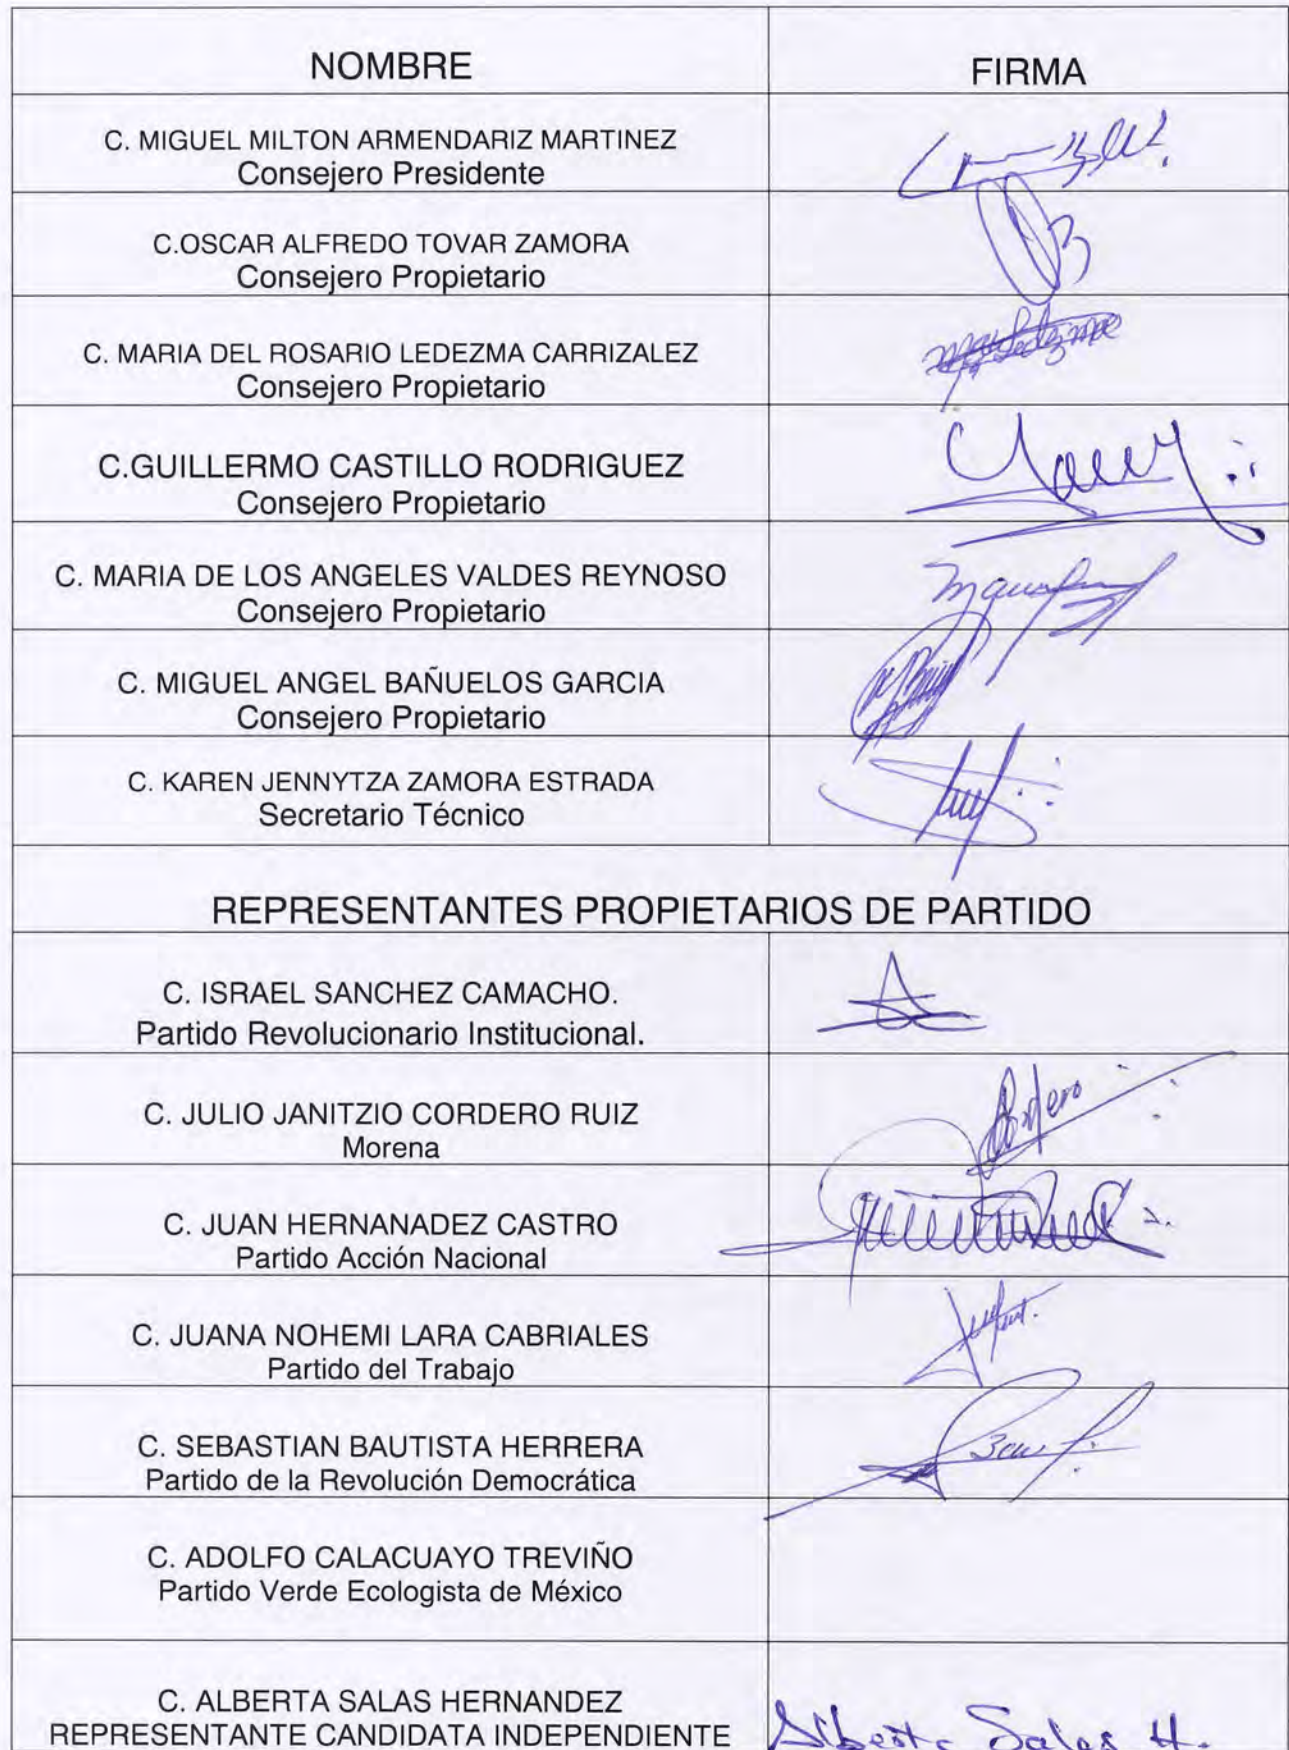 NOMBRE FIRMA
C. MIGUEL MILTON ARMENDARIZ MARTINEZ
Consejero Presidente
C.OSCAR ALFREDO TOVAR ZAMORA
Consejero Propietario
C. MARIA DEL ROSARIO LEDEZMA CARRIZALEZ
Consejero Propietario
C.GUILLERMO CASTILLO RODRIGUEZ
Consejero Propietario
C. MARIA DE LOS ANGELES VALDES REYNOSO
Consejero Propietario
C. MIGUEL ANGEL BAÑUELOS GARCIA
Consejero Propietario
C. KAREN JENNYTZA ZAMORA ESTRADA
Secretario Técnico
REPRESENTANTES PROPIETARIOS DE PARTIDO
C. ISRAEL SANCHEZ CAMACHO.
Partido Revolucionario Institucional.
C. JULIO JANITZIO CORDERO RUIZ
Morena
C. JUAN HERNANADEZ CASTRO
Partido Acción Nacional
C. JUANA NOHEMI LARA CABRIALES
Partido del Trabajo
C. SEBASTIAN BAUTISTA HERRERA
Partido de la Revolución Democrática
C. ADOLFO CALACUAYO TREVIÑO
Partido Verde Ecologista de México
C. ALBERTA SALAS HERNANDEZ
REPRESENTANTE CANDIDATA INDEPENDIENTE
Alberta Salas H.